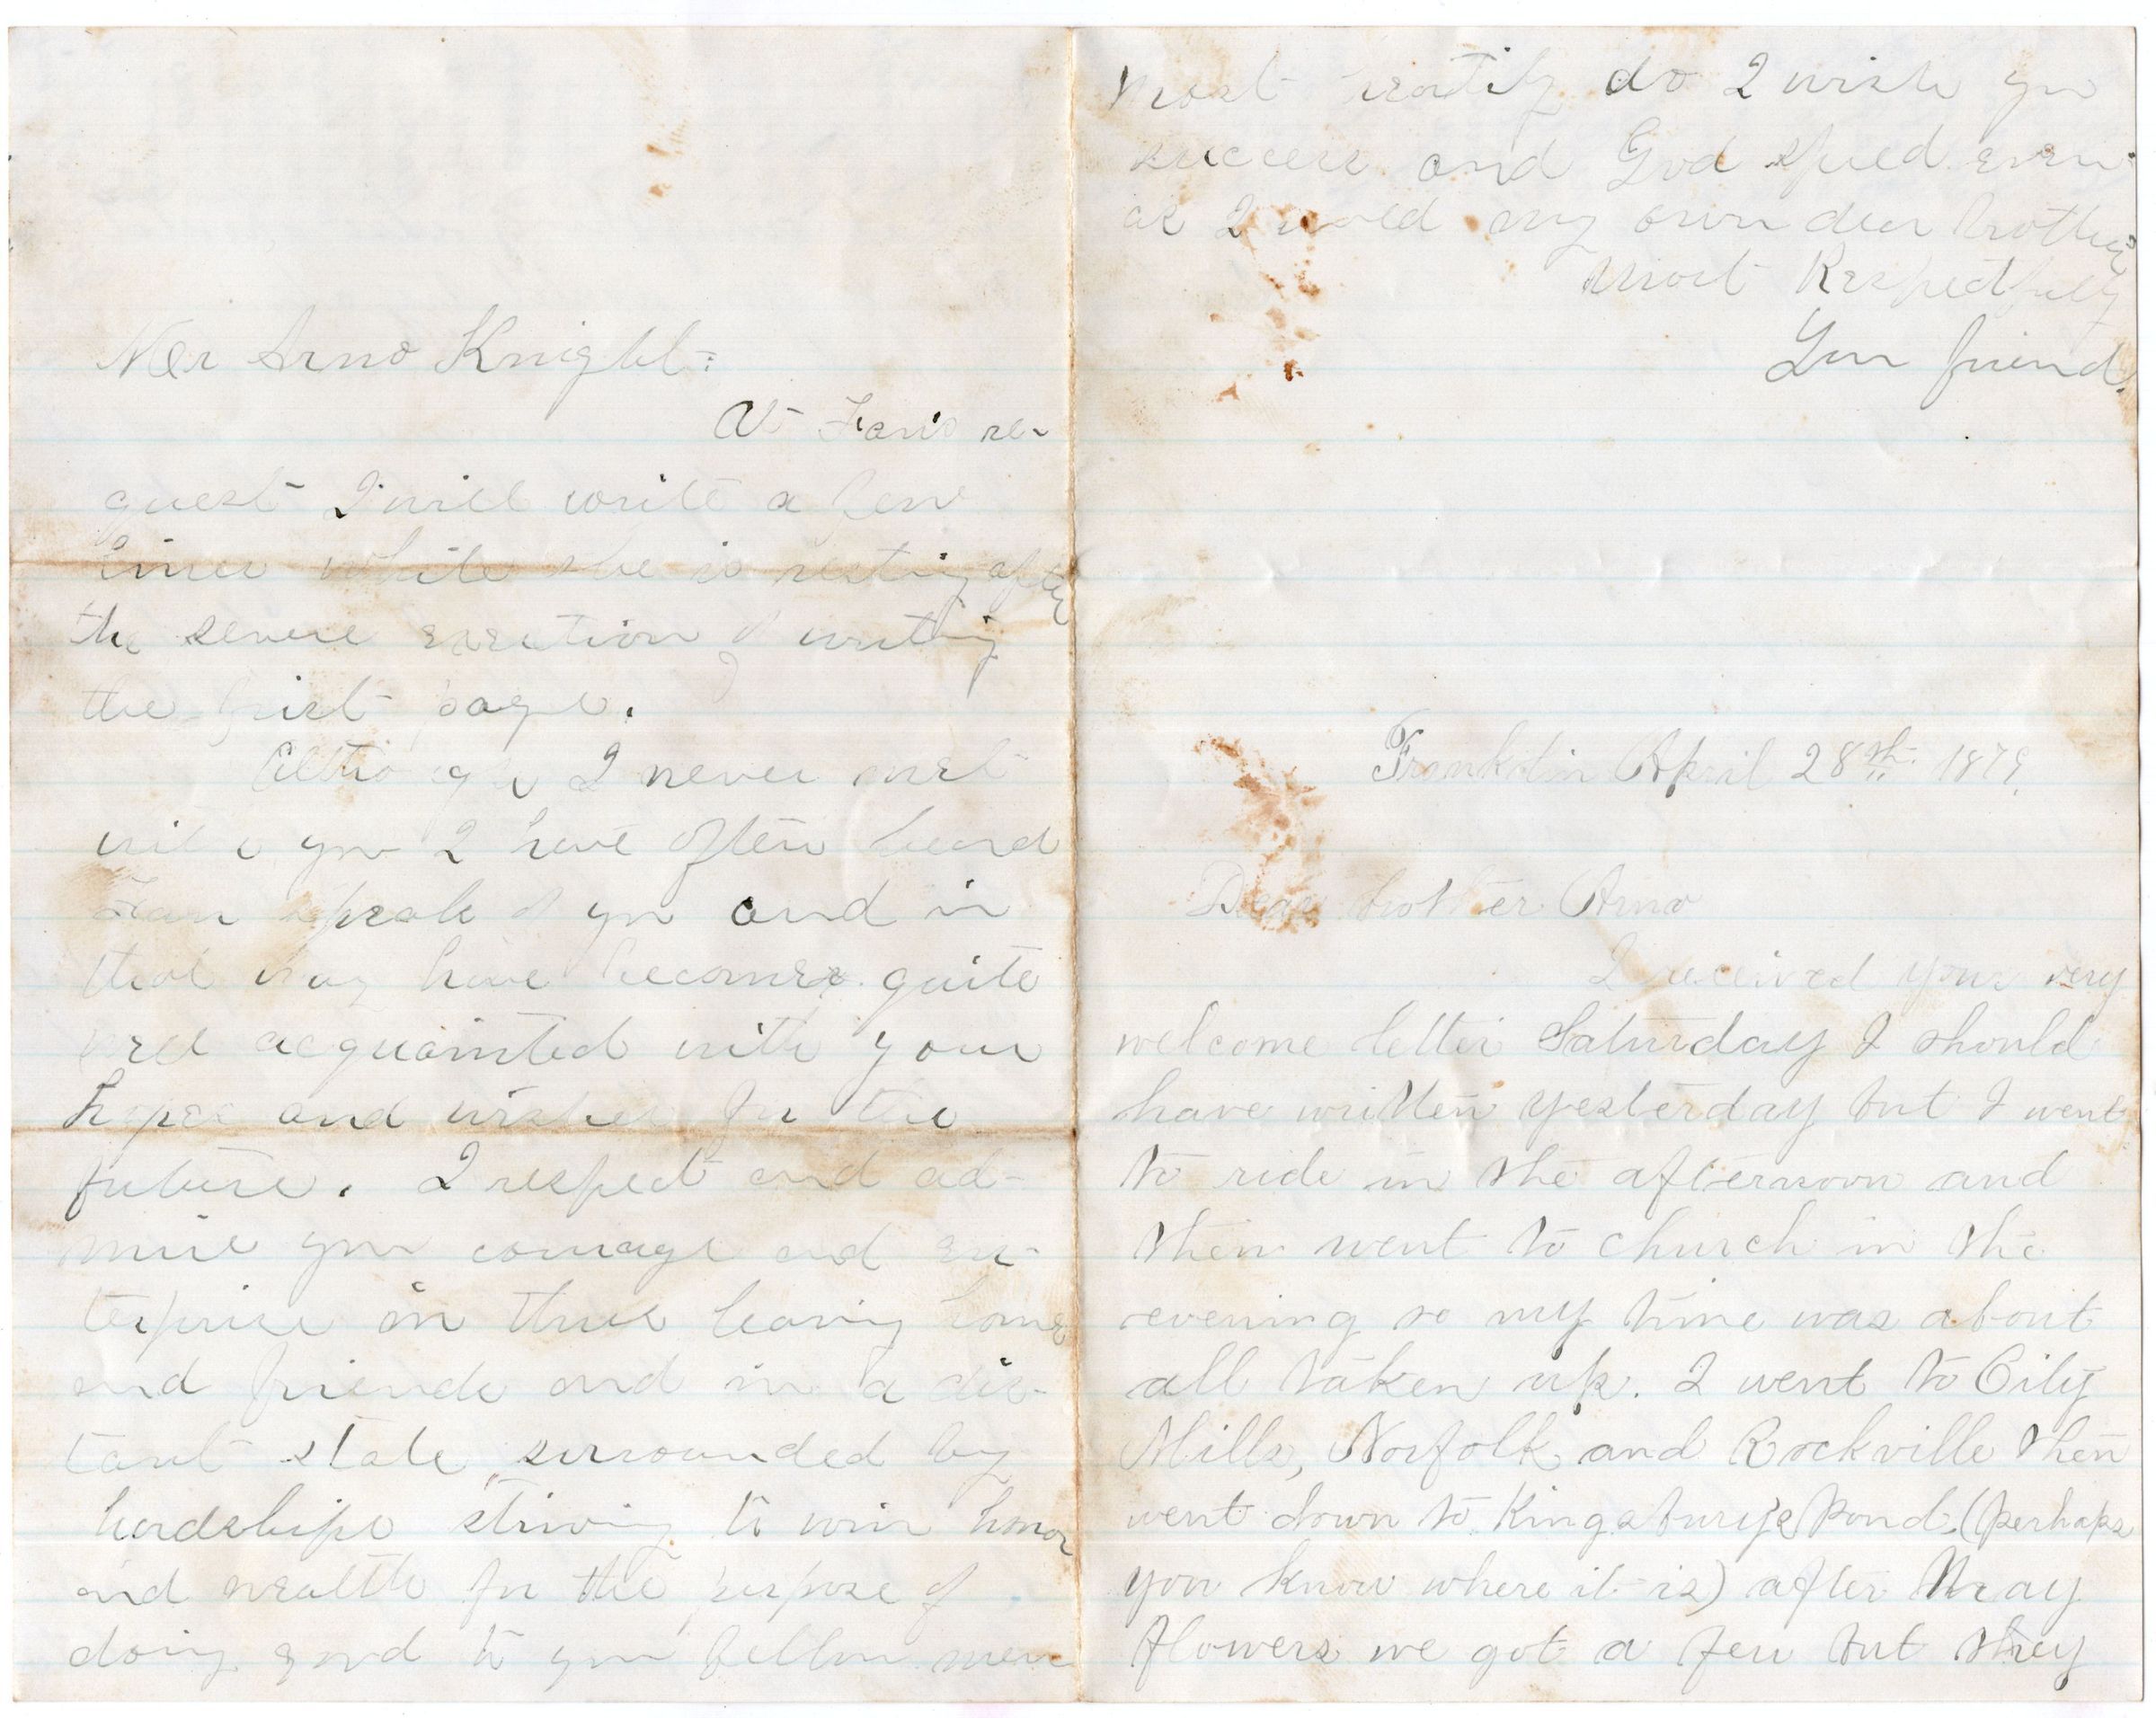 Mr Arno Knight:
At Fan's re-
quest I will write a few
lines while she is resting after
the severe exertion of writing
the first page.
Although I never met
with you I have often heard
Fan speak of you and in
that way have become quite
well acquainted with your
hopes and wishes for the
future. I respect and ad-
mire your courage and en-
terprise in thus leaving home
and friends and in a dis-
tant state surrounded by
hardships striving to win honor
and wealth for the purpose of
doing good to your fellow men
Most do I wish you
success and God speed even
as I would my own dear brother
Most Respectfully
Your friend.
Franklin April 28th 1879.
Dear brother Arno
I received your very
welcome letter Saturday I should
have written yesterday but I went
to ride in the afternoon and
then went to church in the
evening so my time was about
all taken up. I went to City
Mills, Norfolk and Rockville then
went down to Kingsbury's Pond, (perhaps
you know where it is) after May
flowers we got a few but they